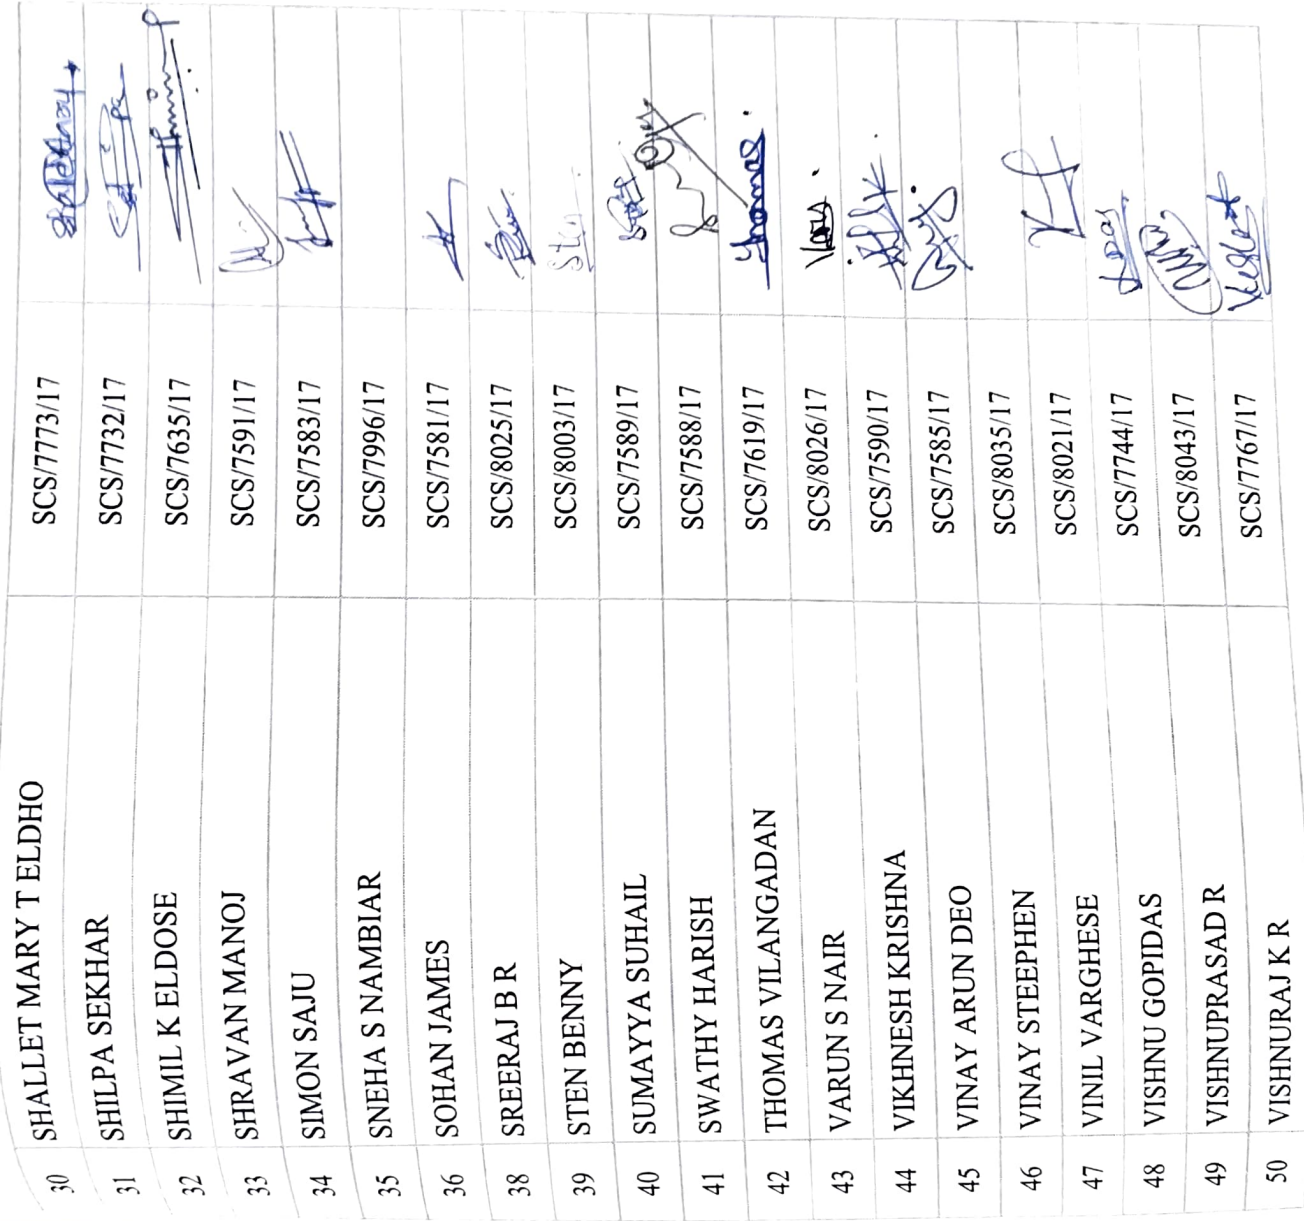 30 SHALLET MARY T ELDHO SCS/7773/17
31 SHILPA SEKHAR SCS/7732/17
32 SHIMIL K ELDOSE SCS/7635/17
33 SHRAVAN MANOJ SCS/7591/17
34 SIMON SAJU SCS/7583/17
35 SNEHA S NAMBIAR SCS/7996/17
36 SOHAN JAMES SCS/7581/17
38 SREERAJ B R SCS/8025/17
39 STEN BENNY SCS/8003/17
40 SUMAYYA SUHAIL SCS/7589/17
41 SWATHY HARISH SCS/7588/17
42 THOMAS VILANGADAN SCS/7619/17 Thomas.
43 VARUN S NAIR SCS/8026/17
44 VIKHNESH KRISHNA SCS/7590/17
45 VINAY ARUN DEO SCS/7585/17
46 VINAY STEEPHEN SCS/8035/17
47 VINIL VARGHESE SCS/8021/17
48 VISHNU GOPIDAS SCS/7744/17
49 VISHNUPRASAD R SCS/8043/17
50 VISHNURAJ K R SCS/7767/17